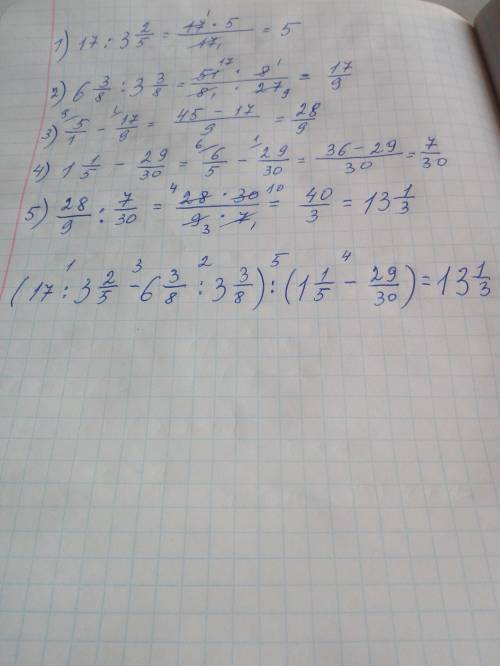 1) 17 : 3 2/5 = 17 · 5 / 17 = 5
2) 6 3/8 : 3 3/8 = 51 · 8 / 8 · 27 = 17/9
3) 5/1 - 17/9 = 45 - 17 / 9 = 28/9
4) 1 1/5 - 29/30 = 6/5 - 29/30 = 36 - 29 / 30 = 7/30
5) 28/9 : 7/30 = 28 · 30 / 9 · 7 = 40/3 = 13 1/3
(17 : 3 2/5 - 6 3/8 : 3 3/8) : (1 1/5 - 29/30) = 13 1/3